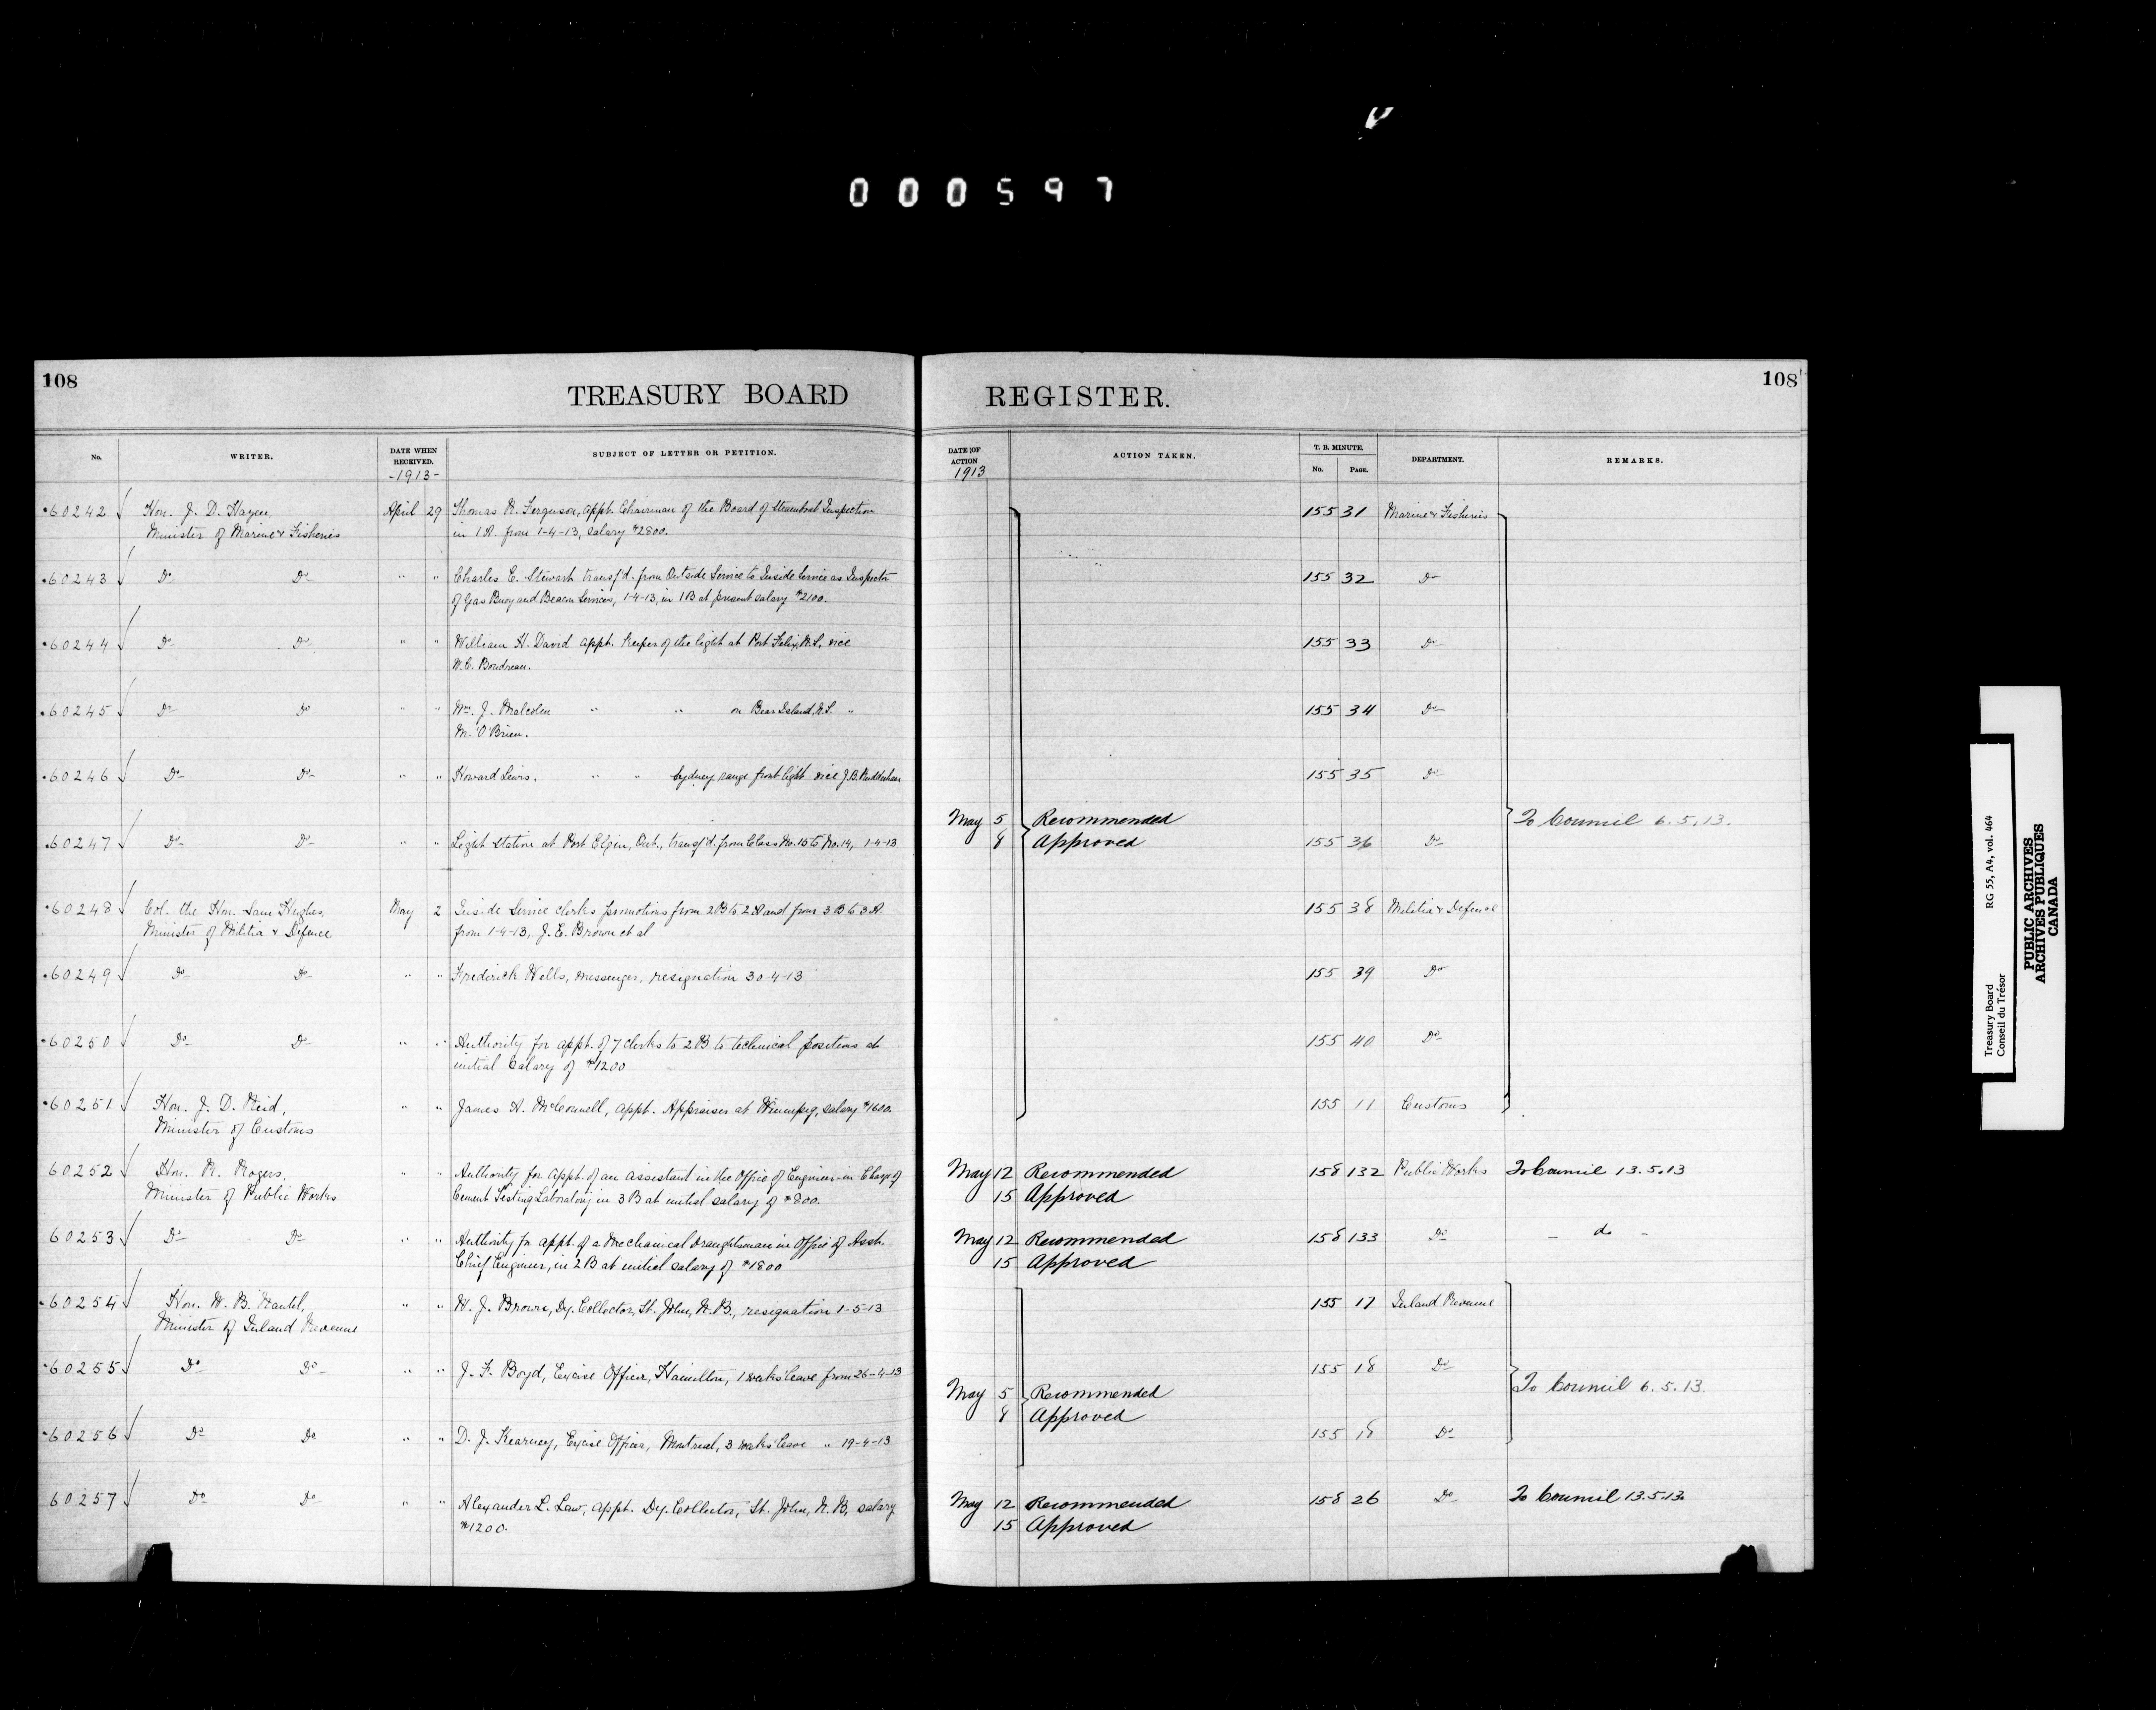 000597
108
TREASURY BOARD REGISTER.
108
No. WRITER. DATE WHEN RECEIVED. SUBJECT OF LETTER OR PETITION. DATE OF ACTION ACTION TAKEN. T. B. MINUTE. No. PAGE. DEPARTMENT. REMARKS.
-1913- 1913
60242 Hon. J. D. Hazen, April 29 Thomas R. Ferguson, appt. Chairman of the Board of Steamboat Inspection 155 31 Marine & Fisheries
Minister of Marine & Fisheries in 1A. from 1-4-13, salary $2800.
60243 Do Do " " Charles E. Stewart transf'd. from Outside Service to Inside Service as Inspector 155 32 Do
of Gas Buoy and Beacon Services, 1-4-13, in 1B at present salary $2100.
60244 Do Do " " William H. David appt. Keeper of the light at Port Felix, N.S. vice 155 33 Do
W.C. Boudreau.
60245 Do Do " " Wm. J. Malcolm " " on Bear Island, N.S. " 155 34 Do
M. O'Brien.
60246 Do Do " " Howard Lewis. " " Sydney range front light vice J.B. 155 35 Do
May 5 Recommended To Council 6.5.13.
60247 Do Do " " Light Station at Port Elgin, Ont., transf'd. from Class No. 15 to No. 14, 1-4-13 8 Approved 155 36 Do
60248 Col. the Hon. Sam Hughes, May 2 Inside Service clerks promotions from 2B to 2A and from 3B to 3A 155 38 Militia & Defence
Minister of Militia & Defence from 1-4-13, J. E. Brown et al
60249 Do Do " " Frederick Wells, messenger, resignation 30-4-13 155 39 Do
60250 Do Do " " Authority for appt. of 7 clerks to 2B to technical positions at 155 40 Do
initial salary of $1200
60251 Hon. J. D. Reid, " " James A. McConnell, appt. Appraiser at Winnipeg, salary $1600. 155 11 Customs
Minister of Customs
60252 Hon. R. Rogers, " " Authority for appt. of an assistant in the Office of Engineer-in-Charge of May 12 Recommended 158 132 Public Works To Council 13.5.13
Minister of Public Works Cement Testing Laboratory in 3B at initial salary of $800. 15 Approved
60253 Do Do " " Authority for appt. of a Mechanical draughtsman in Office of Asst. May 12 Recommended 158 133 Do - do -
Chief Engineer, in 2B at initial salary of $1800 15 Approved
60254 Hon. W. B. Nantel, " " H. J. Brown, Dy. Collector, St. John, N.B., resignation 1-5-13 155 17 Inland Revenue
Minister of Inland Revenue
60255 Do Do " " J. F. Boyd, Excise Officer, Hamilton, 1 weeks' leave from 26-4-13 155 18 Do
May 5 Recommended To Council 6.5.13.
8 Approved
60256 Do Do " " D. J. Kearney, Excise Officer, Montreal, 3 weeks' leave " 19-4-13 155 18 Do
60257 Do Do " " Alexander L. Law, appt. Dy. Collector, St. John, N.B, salary May 12 Recommended 158 26 Do To Council 13.5.13.
$1200. 15 Approved
Treasury Board RG 55, A4, vol. 464
Conseil du Trésor
PUBLIC ARCHIVES
ARCHIVES PUBLIQUES
CANADA